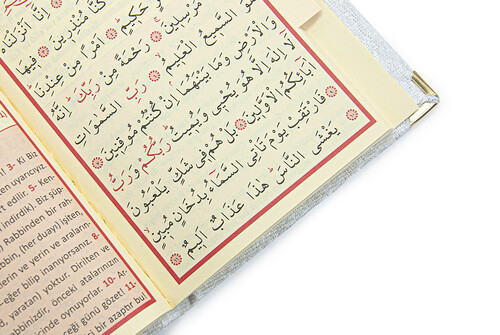 اِنَّٓا اَنْزَلْنَاهُ
كُنَّا مُنْذِرِينَ فِيهَا
حَكِيمٍ اَمْرًا مِنْ عِنْدِنَا
مُرْسِلِينَ رَحْمَةً مِنْ رَبِّكَ اِنَّهُ
هُوَ السَّمِيعُ الْعَلِيمُ رَبِّ السَّمٰوَاتِ
وَالْاَرْضِ وَمَا بَيْنَهُمَا اِنْ كُنْتُمْ مُوقِنِينَ
لَٓا اِلٰهَ اِلَّا هُوَ يُحْيٖى وَيُمِيتُ رَبُّكُمْ وَرَبُّ
اٰبَٓائِكُمُ الْاَوَّلِينَ بَلْ هُمْ فِى شَكٍّ يَلْعَبُونَ
فَارْتَقِبْ يَوْمَ تَأْتِى السَّمَٓاءُ بِدُخَانٍ مُبِينٍ
يَغْشَى النَّاسَ هٰذَا عَذَابٌ اَلِيمٌ
3- Ki Biz
en uyarıcıyız.
t edilir. 5- Ken-
indirdik). Biz şüp-
) Rabbinden bir rah-
, (her duay) işiten,
erin ve yerin ve araların-
-eğer bilip inanıyorsanız. 8-
yaratan) yoktur. Dirilten ve
abbinizdir, önceki atalarınızın
içinde oynuyorlar. 10- Ar-
eği günü gözet! 11-
i bir azaptır bu!